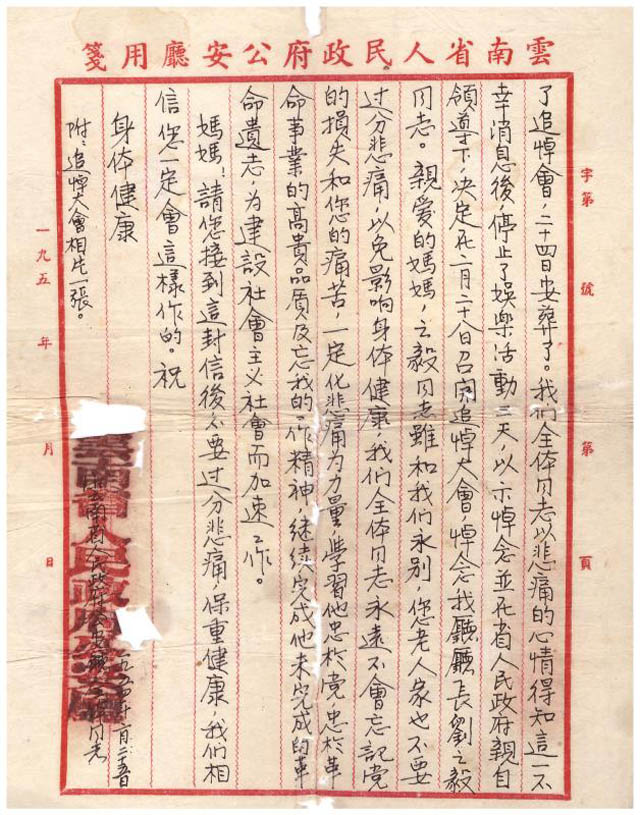 雲南省人民政府公安廳用箋
字第 號 第 頁
了追悼會，二十四日安葬了。我们全体同志以悲痛的心情得知這一不
幸消息後，停止了娛樂活動三天，以示悼念並在省人民政府親自
領導下，決定在二月二十八日召開追悼大會，悼念我廳廳長劉之毅
同志。親爱的媽媽，之毅同志雖和我们永别，您老人家也不要
过分悲痛，以免影响身体健康，我们全体同志永遠不會忘記党
的損失和您的痛苦，一定化悲痛为力量，學習他忠於党，忠於革
命事業的高貴品质及忘我的工作精神，继续完成他未完成的革
命遺志，为建設社會主义社會而加速工作。
媽媽！請您接到這封信後不要过分悲痛，保重健康，我们相
信您一定會這樣作的。祝
身体健康
附：追悼大會相片一張。
雲南省人民政府公安廳
一九五 年 月 日